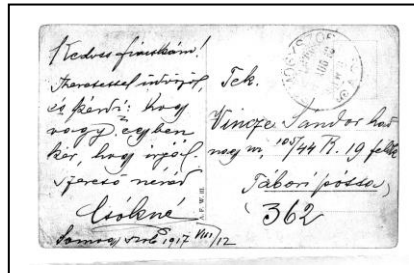 Kedves fiacskám!
Szeretettel üdvözöl,
és kérdi: hogy
vagy? egyben
kér, hogy írjál.
szerető nénéd
Csókné
Somogyszob 1917 VIII/12
Tek.
Vincze Sándor had
nagy m. 105/44 R. 19 feltk
Tábori posta
362